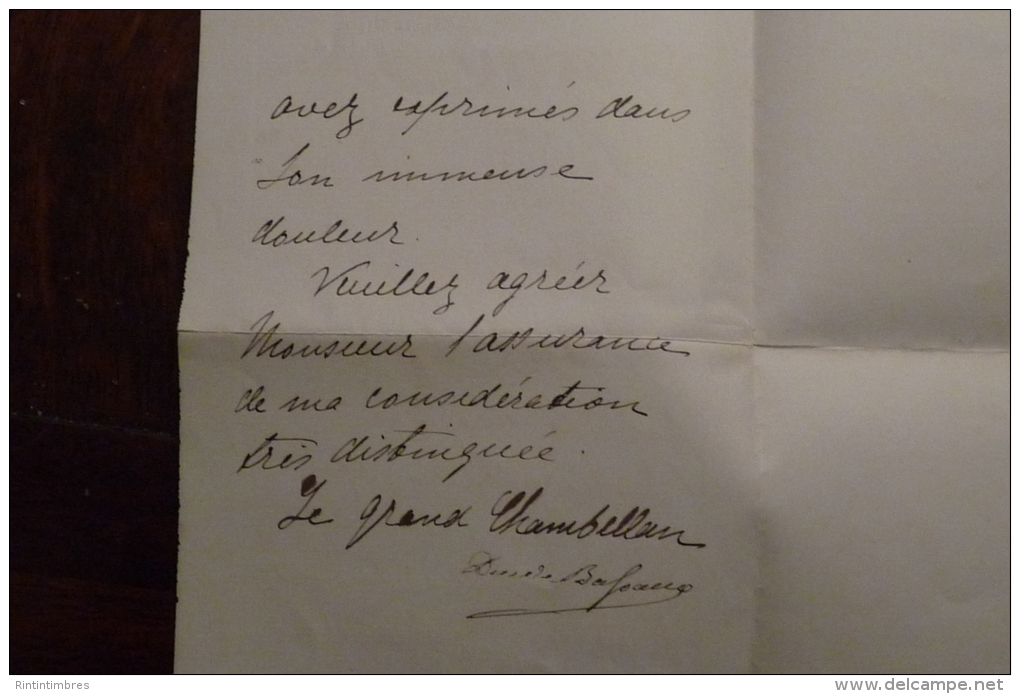 avez exprimés dans
Son immense
douleur.
Veuillez agréer
Monsieur l'assurance
de ma considération
très distinguée.
Le grand Chambellan
Duc de Bassano
Rintintimbres
www.delcampe.net